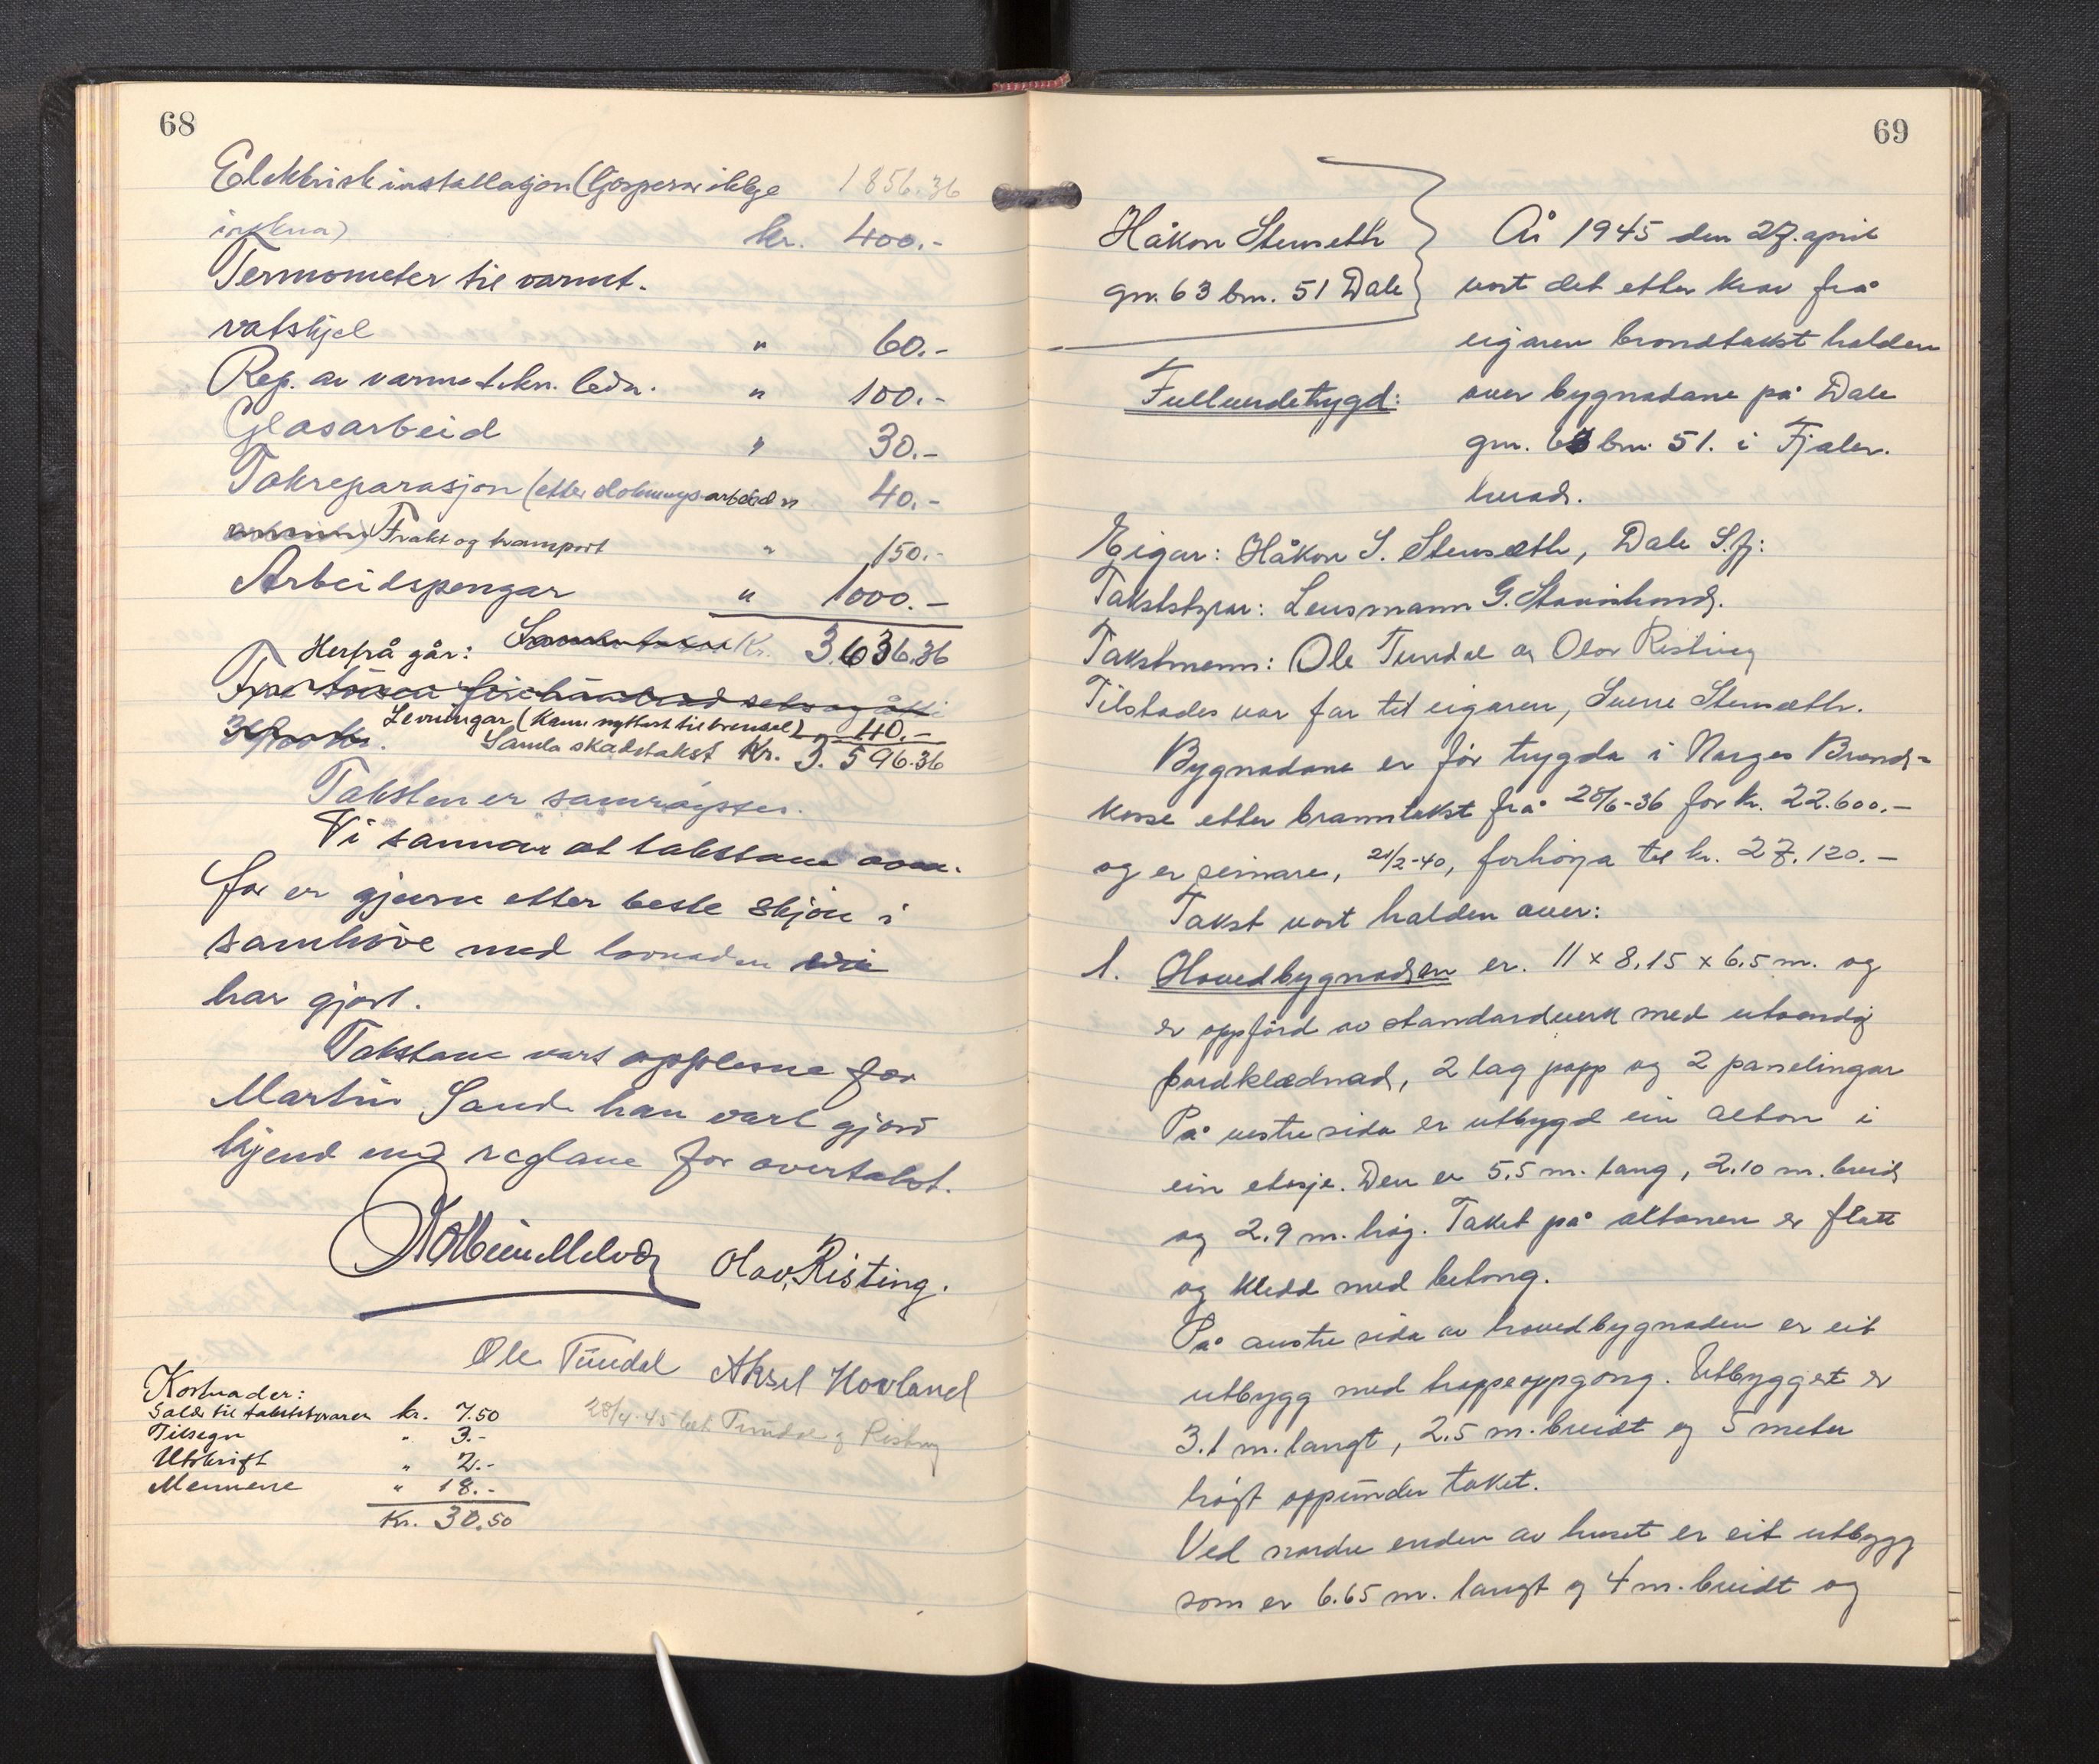 68
Elektrisk installasjon (Gjesper ikkje 1856.36
innkna) kr. 400.-
Termometer til varmt-
vatskjel " 60.-
Rep. av varmetekn. ledn. " 100.-
Glasarbeid " 30.-
Takreparasjon (etter slokningsarbeid " 40.-
Frakt og transport " 150.-
Arbeidspengar " 1000.-
Herfrå går: Samla takst Kr. 3.636.36
Levningar (kann nyttast til brensel) " 40.-
Samla skadetakst Kr. 3.596.36
Taksten er samrøystes.
Vi sannar at takstane ovan-
for er gjevne etter beste skjøn i
samhøve med lovnaden vi
har gjort.
Takstane vart opplesne for
Martin Sande han vart gjord
kjend med reglane for overtakst.
Olav Risting.
Ole Tundal Aksel Hovland
28/4-45 bet. Tundal og Risting
Kostnader:
Salær til takststyraren kr. 7.50
Tilsegn " 3.-
Utskrift " 2.-
Mennene " 18.-
Kr. 30.50
69
Håkon Stenseth
gn. 63 bn. 51 Dale
Fullverdetrygd:
År 1945 den 27. april
vart det etter krav frå
eigaren brandtakst halden
over bygnadane på Dale
gnr. 63 bnr. 51. i Fjaler
herad.
Eigar: Håkon S. Stensæth, Dale S.fj:
Takststyrar: Lensmann G. Stavishond.
Takstmenn: Ole Tundal og Olav Risting
Tilstades var far til eigaren, Sverre Stensæth.
Bygnadane er før trygda i Norges Brand-
kasse etter branntakst frå 28/6-36 for kr. 22.600.-
og er seinare, 21/2-40, forhøya til kr. 27.120.-
Takst vart halden over:
1. Hovedbygnaden er. 11 x 8,15 x 6,5 m. og
er oppførd av standardverk med utvendig
bordklædnad, 2 lag papp og 2 panelingar
På vestre sida er utbygd ein altan i
ein etasje. Den er 5,5 m. lang, 2,10 m. breid
og 2,9 m. høg. Taket på altanen er flatt
og kledd med betong.
På austre sida av hovedbygnaden er eit
utbygg med trappeoppgong. Utbygget er
3.1 m. langt, 2.5 m. breidt og 5 meter
høgt oppunder taket.
Ved nordre enden av huset er eit utbygg
som er 6.65 m. langt og 4 m. breidt og